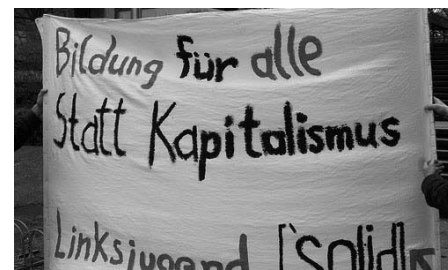 Bildung für alle
Statt Kapitalismus
Linksjugend ['solid]